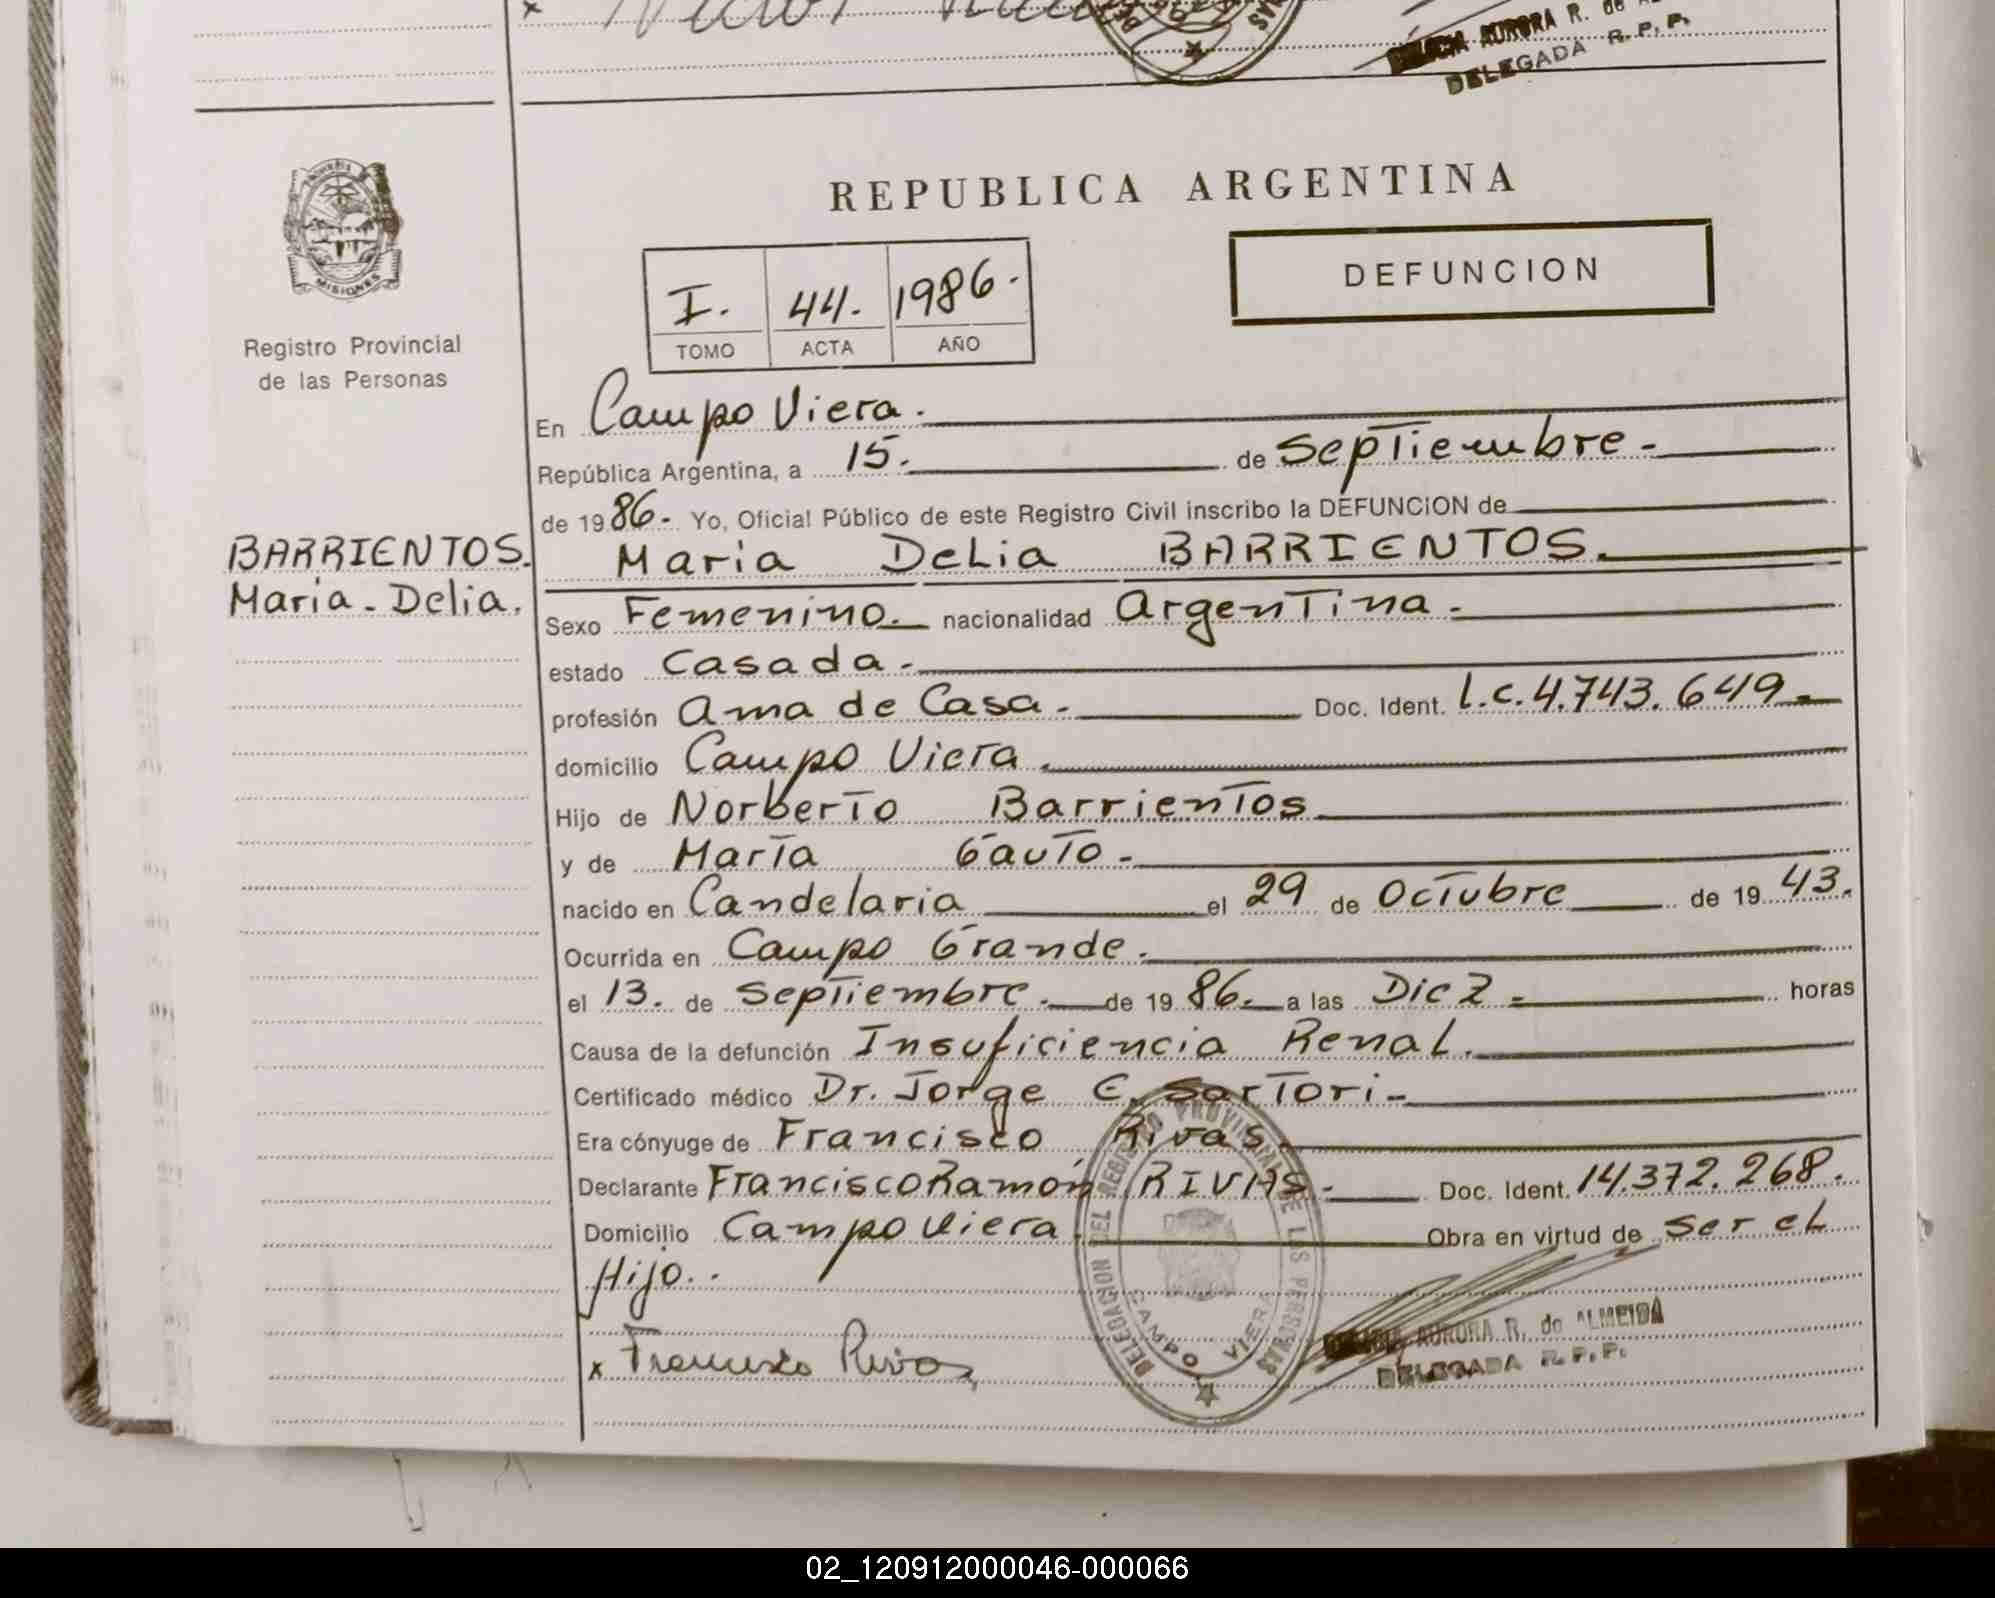 AURORA R. de
DELEGADA R. P. P.
MISIONES
Registro Provincial
de las Personas
BARRIENTOS.
Maria - Delia.
REPUBLICA ARGENTINA
DEFUNCION
I. 44. 1986.
TOMO ACTA AÑO
En Campo Viera.
República Argentina, a 15. de Septiembre -
de 1986. Yo, Oficial Público de este Registro Civil inscribo la DEFUNCION de
Maria Delia BARRIENTOS.
Sexo Femenino. nacionalidad Argentina.
estado Casada.
profesión Ama de Casa. Doc. Ident. L.C. 4.743.649.
domicilio Campo Viera.
Hijo de Norberto Barrientos
y de María Gauto.
nacido en Candelaria el 29 de Octubre de 1943.
Ocurrida en Campo Grande.
el 13. de Septiembre. de 1986. a las Diez horas
Causa de la defunción Insuficiencia Renal.
Certificado médico Dr. Jorge E. Sartori -
Era cónyuge de Francisco Rivas.
Declarante Francisco Ramón RIVAS - Doc. Ident. 14.372.268.
Domicilio Campo Viera. Obra en virtud de ser el
Hijo..
x Francisco Rivas
DELEGACION DEL REGISTRO PROVINCIAL DE LAS PERSONAS
CAMPO VIERA
AURORA R. de ALMEIDA
DELEGADA R. P. P.
02_120912000046-000066